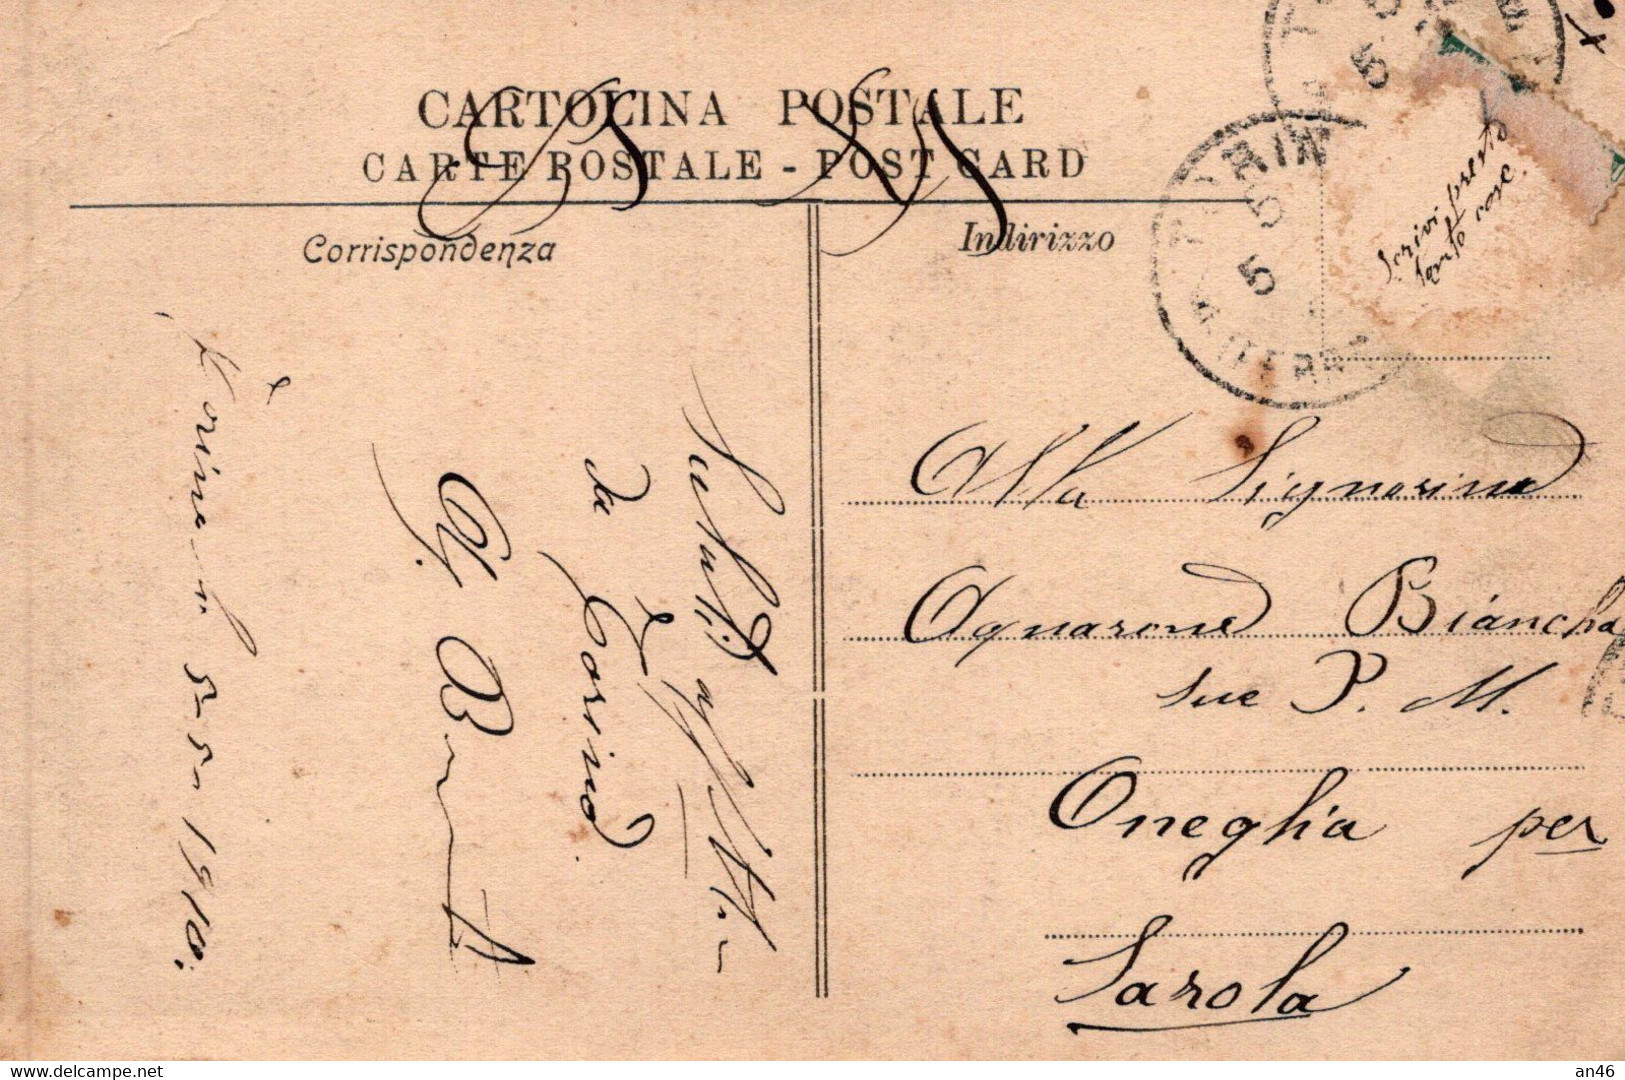 CARTOLINA POSTALE
CARTE POSTALE - POST CARD
Corrispondenza
Indirizzo
TORIN
5 5
FERR
5
Scrivi presto
tante cose.
Saluti affett.
da Torino
Torino 5-5-1910.
Alla Signorina
Aquarone Bianca
P. M.
Oneglia per
Sarola
delcampe.net
an46